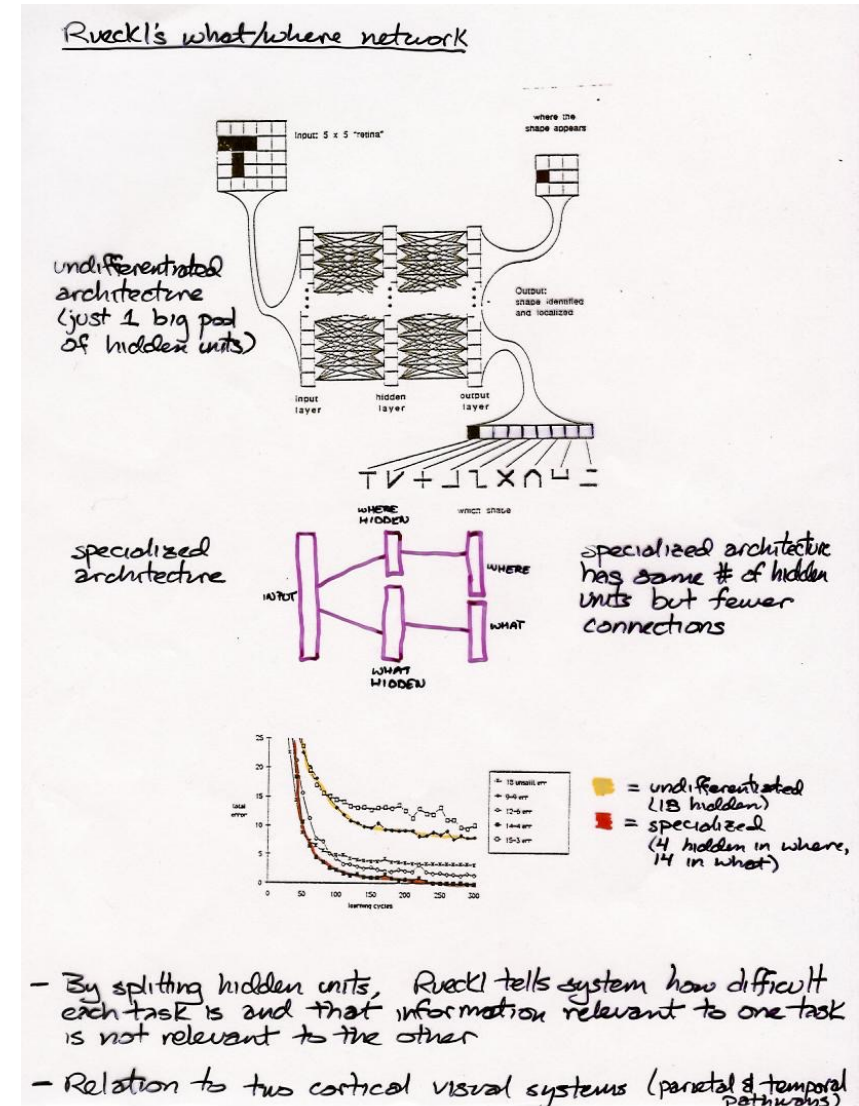 Rueckl's what/where network
Input: 5 x 5 "retina"
where the
shape appears
undifferentiated
architecture
(just 1 big pool
of hidden units)
Output:
shape identified
and localized
input
layer
hidden
layer
output
layer
which shape
specialized
architecture
INPUT
WHERE
HIDDEN
WHERE
WHAT
WHAT
HIDDEN
specialized architecture
has same # of hidden
units but fewer
connections
25
20
15
10
5
0
total
error
0 50 100 150 200 250 300
learning cycles
18 unsplit err
9-9 err
12-6 err
14-4 err
15-3 err
= undifferentiated
(18 hidden)
= specialized
(4 hidden in where,
14 in what)
- By splitting hidden units, Rueckl tells system how difficult
each task is and that information relevant to one task
is not relevant to the other
- Relation to two cortical visual systems (parietal & temporal
pathways)